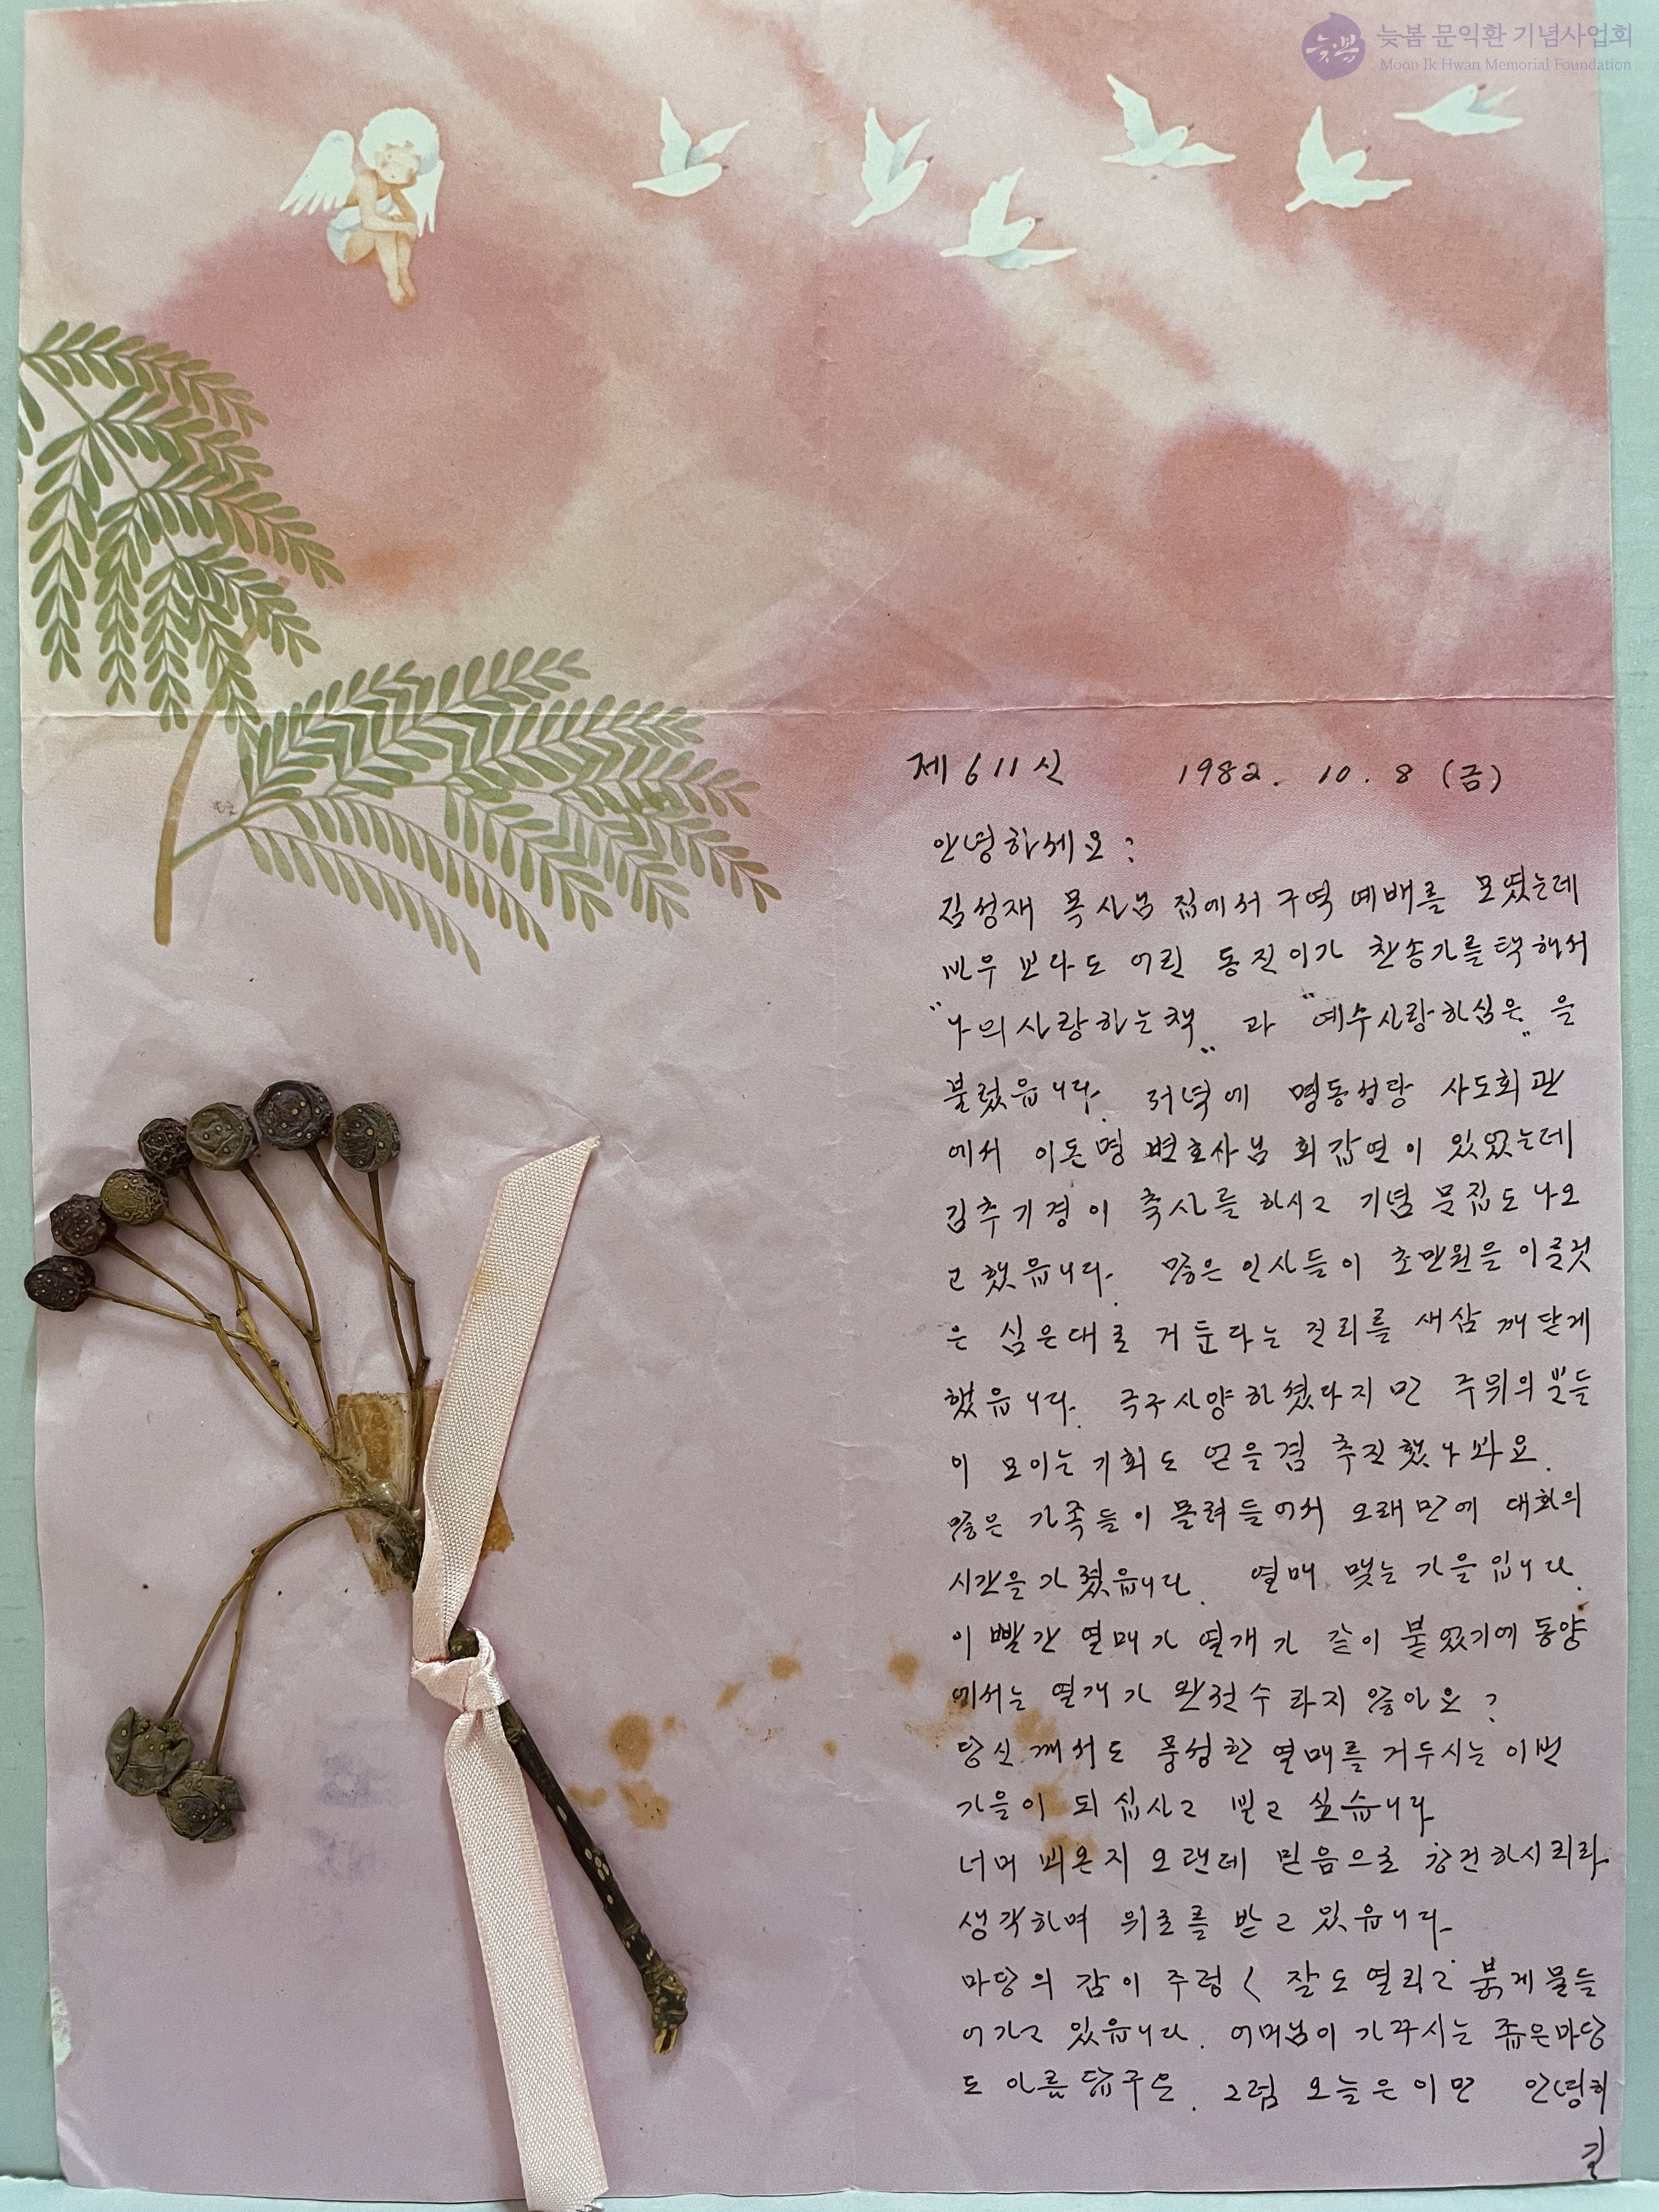 늦봄 문익환 기념사업회
Moon Ik Hwan Memorial Foundation
늦봄
제 611신 1982. 10. 8 (금)
안녕하세요?
김성재 목사님 집에서 구역 예배를 모였는데
보다도 어린 동진이가 찬송가를 택해서
"나의 사랑하는 책" 과 "예수 사랑하심은" 을
불렀읍니다. 저녁에 명동성당 사도회관
에서 이돈명 변호사님 회갑연이 있었는데
김추기경이 축사를 하시고 기념 문집도 나오
고 했읍니다. 많은 인사들이 초만원을 이룰것
은 심은대로 거둔다는 진리를 새삼 깨닫게
했읍니다. 극구 사양하셨다지만 주위의 분들
이 모이는 기회도 얻을겸 추진했나봐요.
많은 가족들이 몰려들어서 오래만에 대화의
시간을 가졌읍니다. 열매 맺는 가을입니다.
이 빨간 열매가 열개가 같이 붙었기에 동양
에서는 열개가 완전수라지 않아요?
당신께서도 풍성한 열매를 거두시는 이번
가을이 되십사고 빌고 싶습니다
너머 뵈온지 오랜데 믿음으로 강건하시리라
생각하며 위로를 받고 있읍니다.
마당의 감이 주렁〱 잘도 열리고 붉게 물들
어가고 있읍니다. 어머님이 가꾸시는 좁은마당
도 아름답구요. 그럼 오늘은 이만 안녕히
길